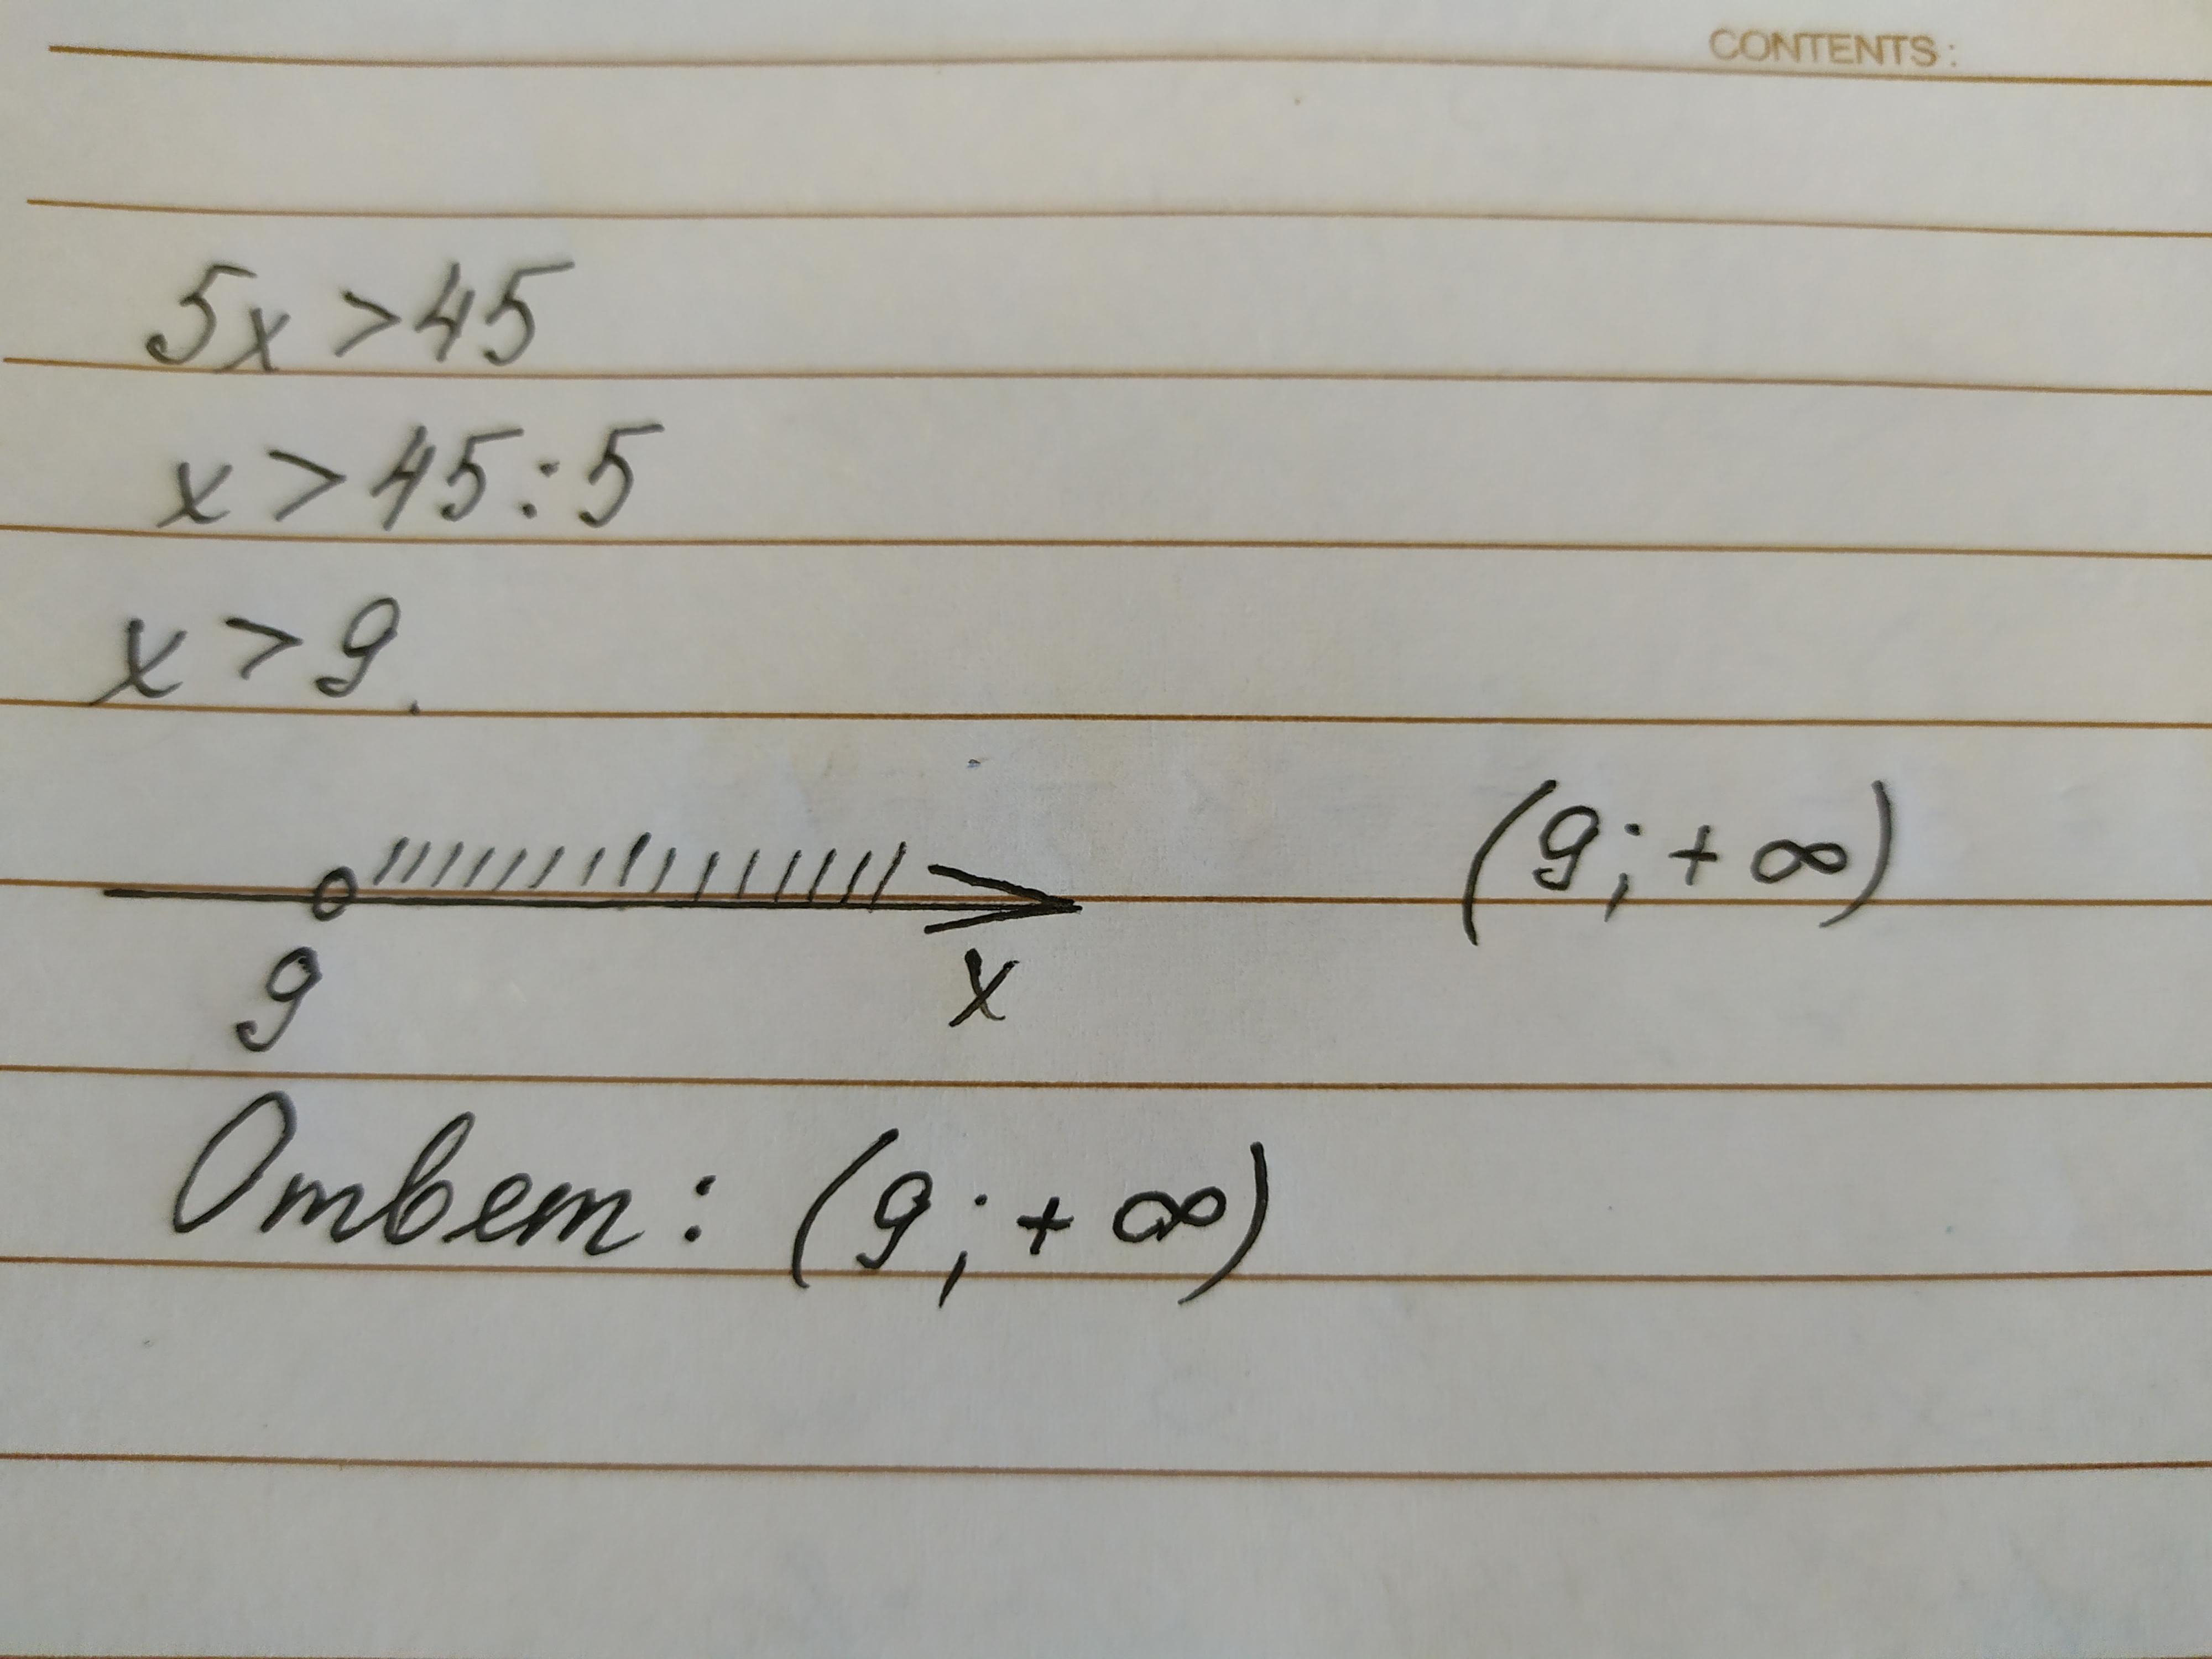 CONTENTS:
5x > 45
x > 45 : 5
x > 9.
(9; + ∞)
9
x
Ответ: (9; + ∞)